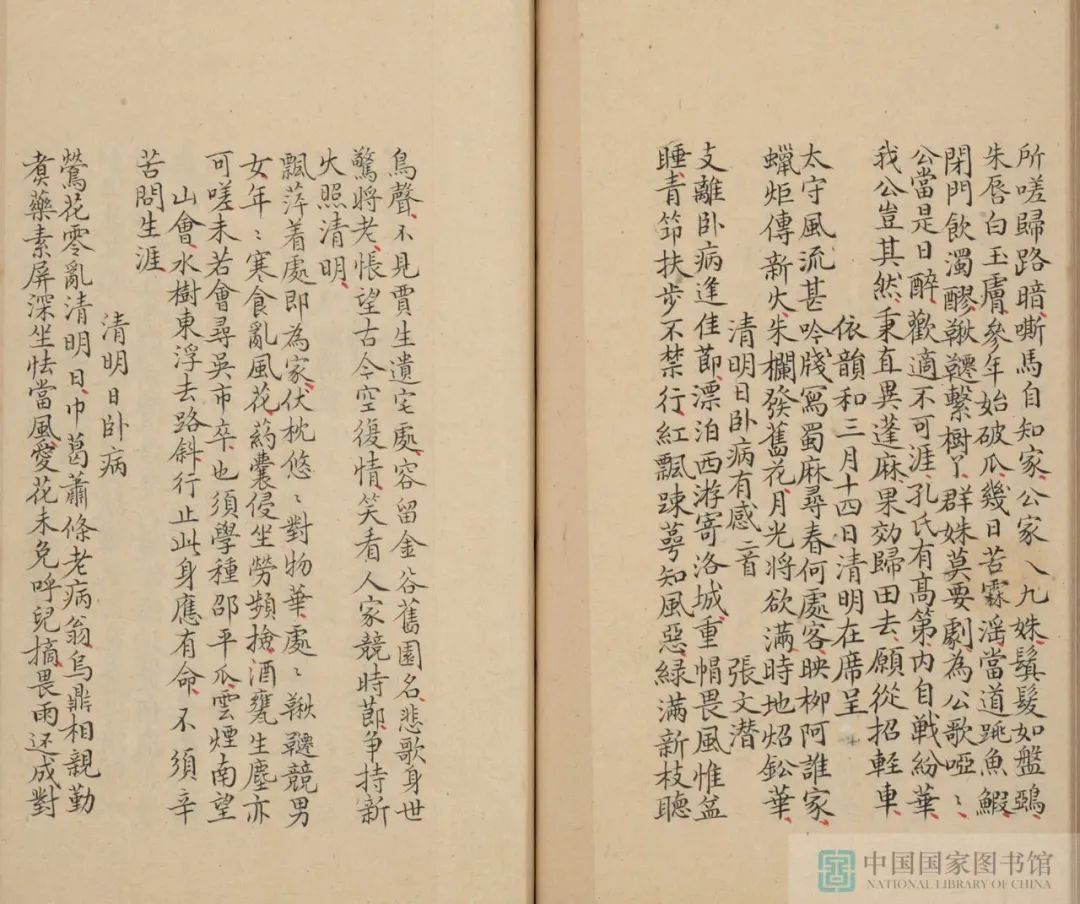 所嗟歸路暗嘶馬自知家公家八九姝鬒髮如盤鵶
朱唇白玉膚參年始破瓜幾日苦霖滛當道跳魚鰕
閉門飲濁醪鞦韆繫樹丫群姝莫要劇為公歌啞〻
公當是日醉歡適不可涯孔氏有高第内自戦紛華
我公豈其然秉直異蓬麻果効歸田去願從招輕車
依韻和三月十四日清明在席呈
太守風流甚吟牋寫蜀麻尋春何處客映柳阿誰家
蠟炬傳新火朱欄發舊花月光將欲滿時地炤鈆華
清明日卧病有感二首 張文潛
支離卧病逢佳莭漂泊西游寄洛城重帽畏風惟盆
睡青笻扶步不禁行紅飄踈萼知風惡綠滿新枝聽
鳥聲不見賈生遺宅處容留金谷舊園名悲歌身世
驚將老悵望古今空復情笑看人家競時莭争持新
火照清明
飄萍着處即為家伏枕悠〻對物華處〻鞦韆競男
女年〻寒食亂風花葯囊侵坐勞頻撿酒甕生塵亦
可嗟未若會尋吳市卒也須學種邵平瓜雲煙南望
山會水樹東浮去路斜行止此身應有命不須辛
苦問生涯
清明日卧病
鶯花零亂清明日巾葛蕭條老病翁烏鼎相親勤
煑藥素屏深坐怯當風愛花未免呼兒摘畏雨还成對
中国国家图书馆
NATIONAL LIBRARY OF CHINA